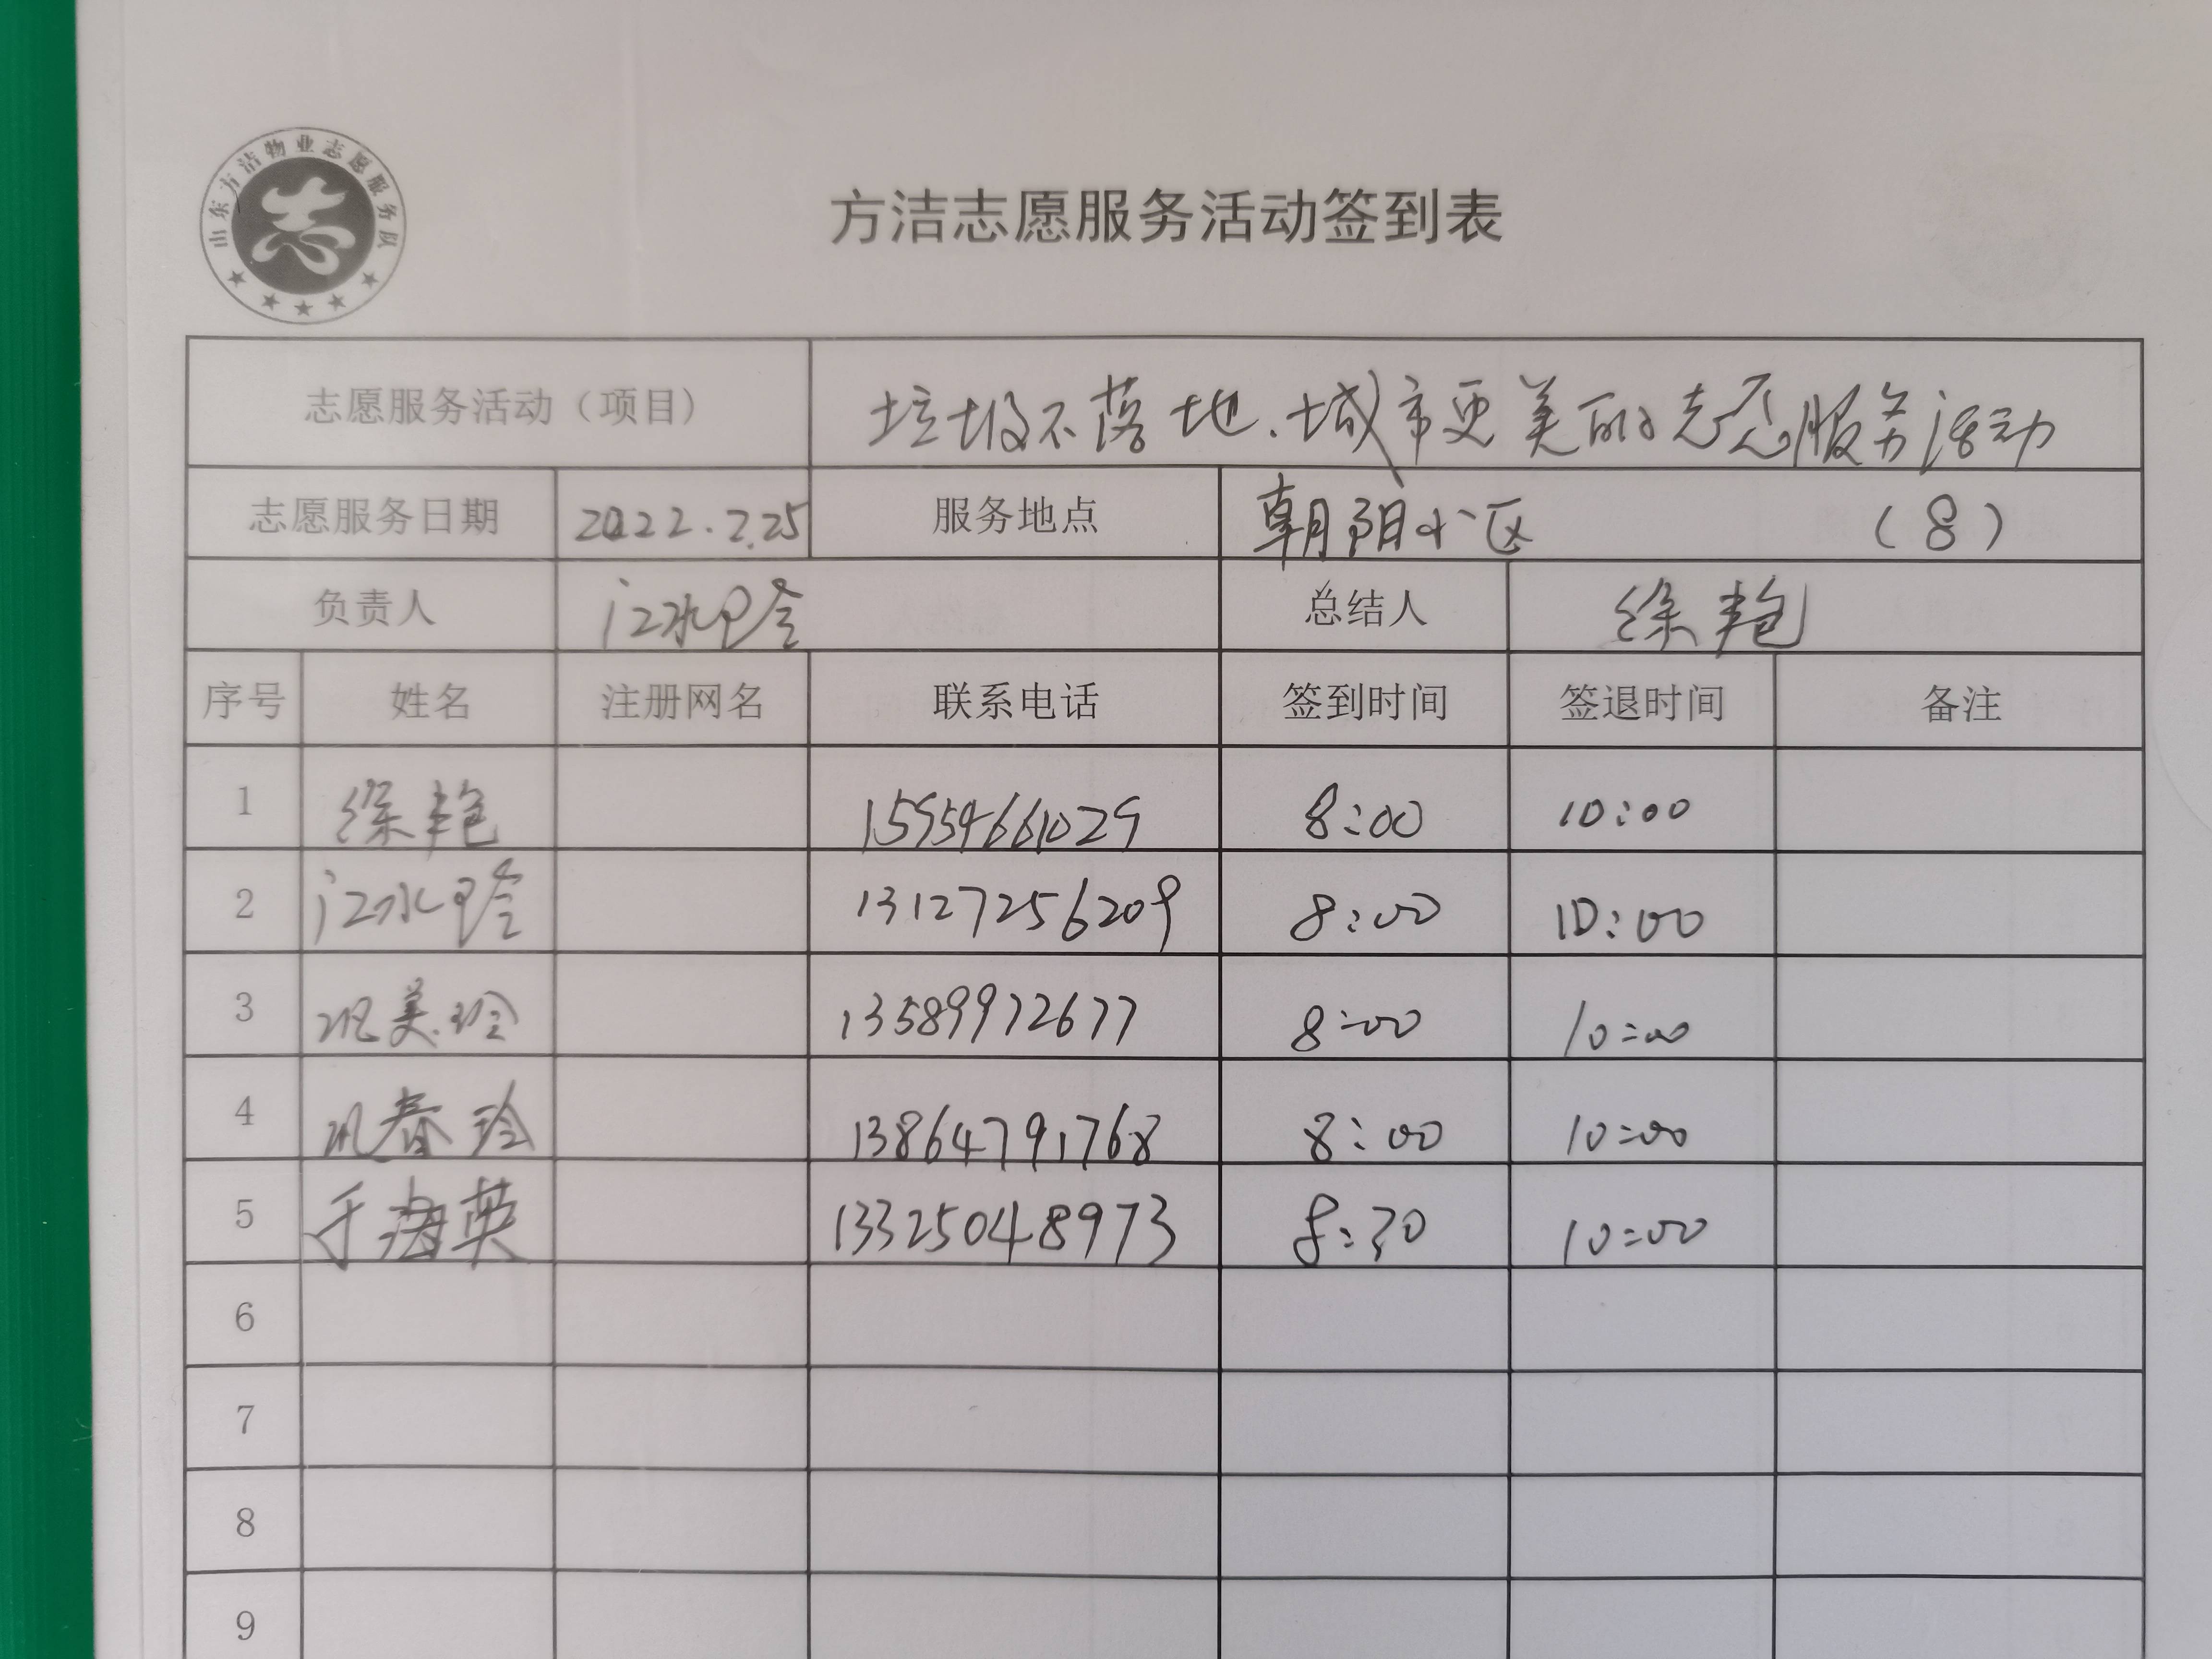 山东方洁物业志愿服务队
志
方洁志愿服务活动签到表
志愿服务活动（项目） 垃圾不落地.城市更美的志愿服务活动
志愿服务日期 2022.2.25 服务地点 朝阳小区 （8）
负责人 江水玲 总结人 徐艳
序号 姓名 注册网名 联系电话 签到时间 签退时间 备注
1 徐艳 15954661029 8:00 10:00
2 江水玲 13127256209 8:00 10:00
3 美玲 13589972677 8:00 10:00
4 春玲 13864791768 8:00 10:00
5 于海英 13325048973 8:30 10:00
6
7
8
9